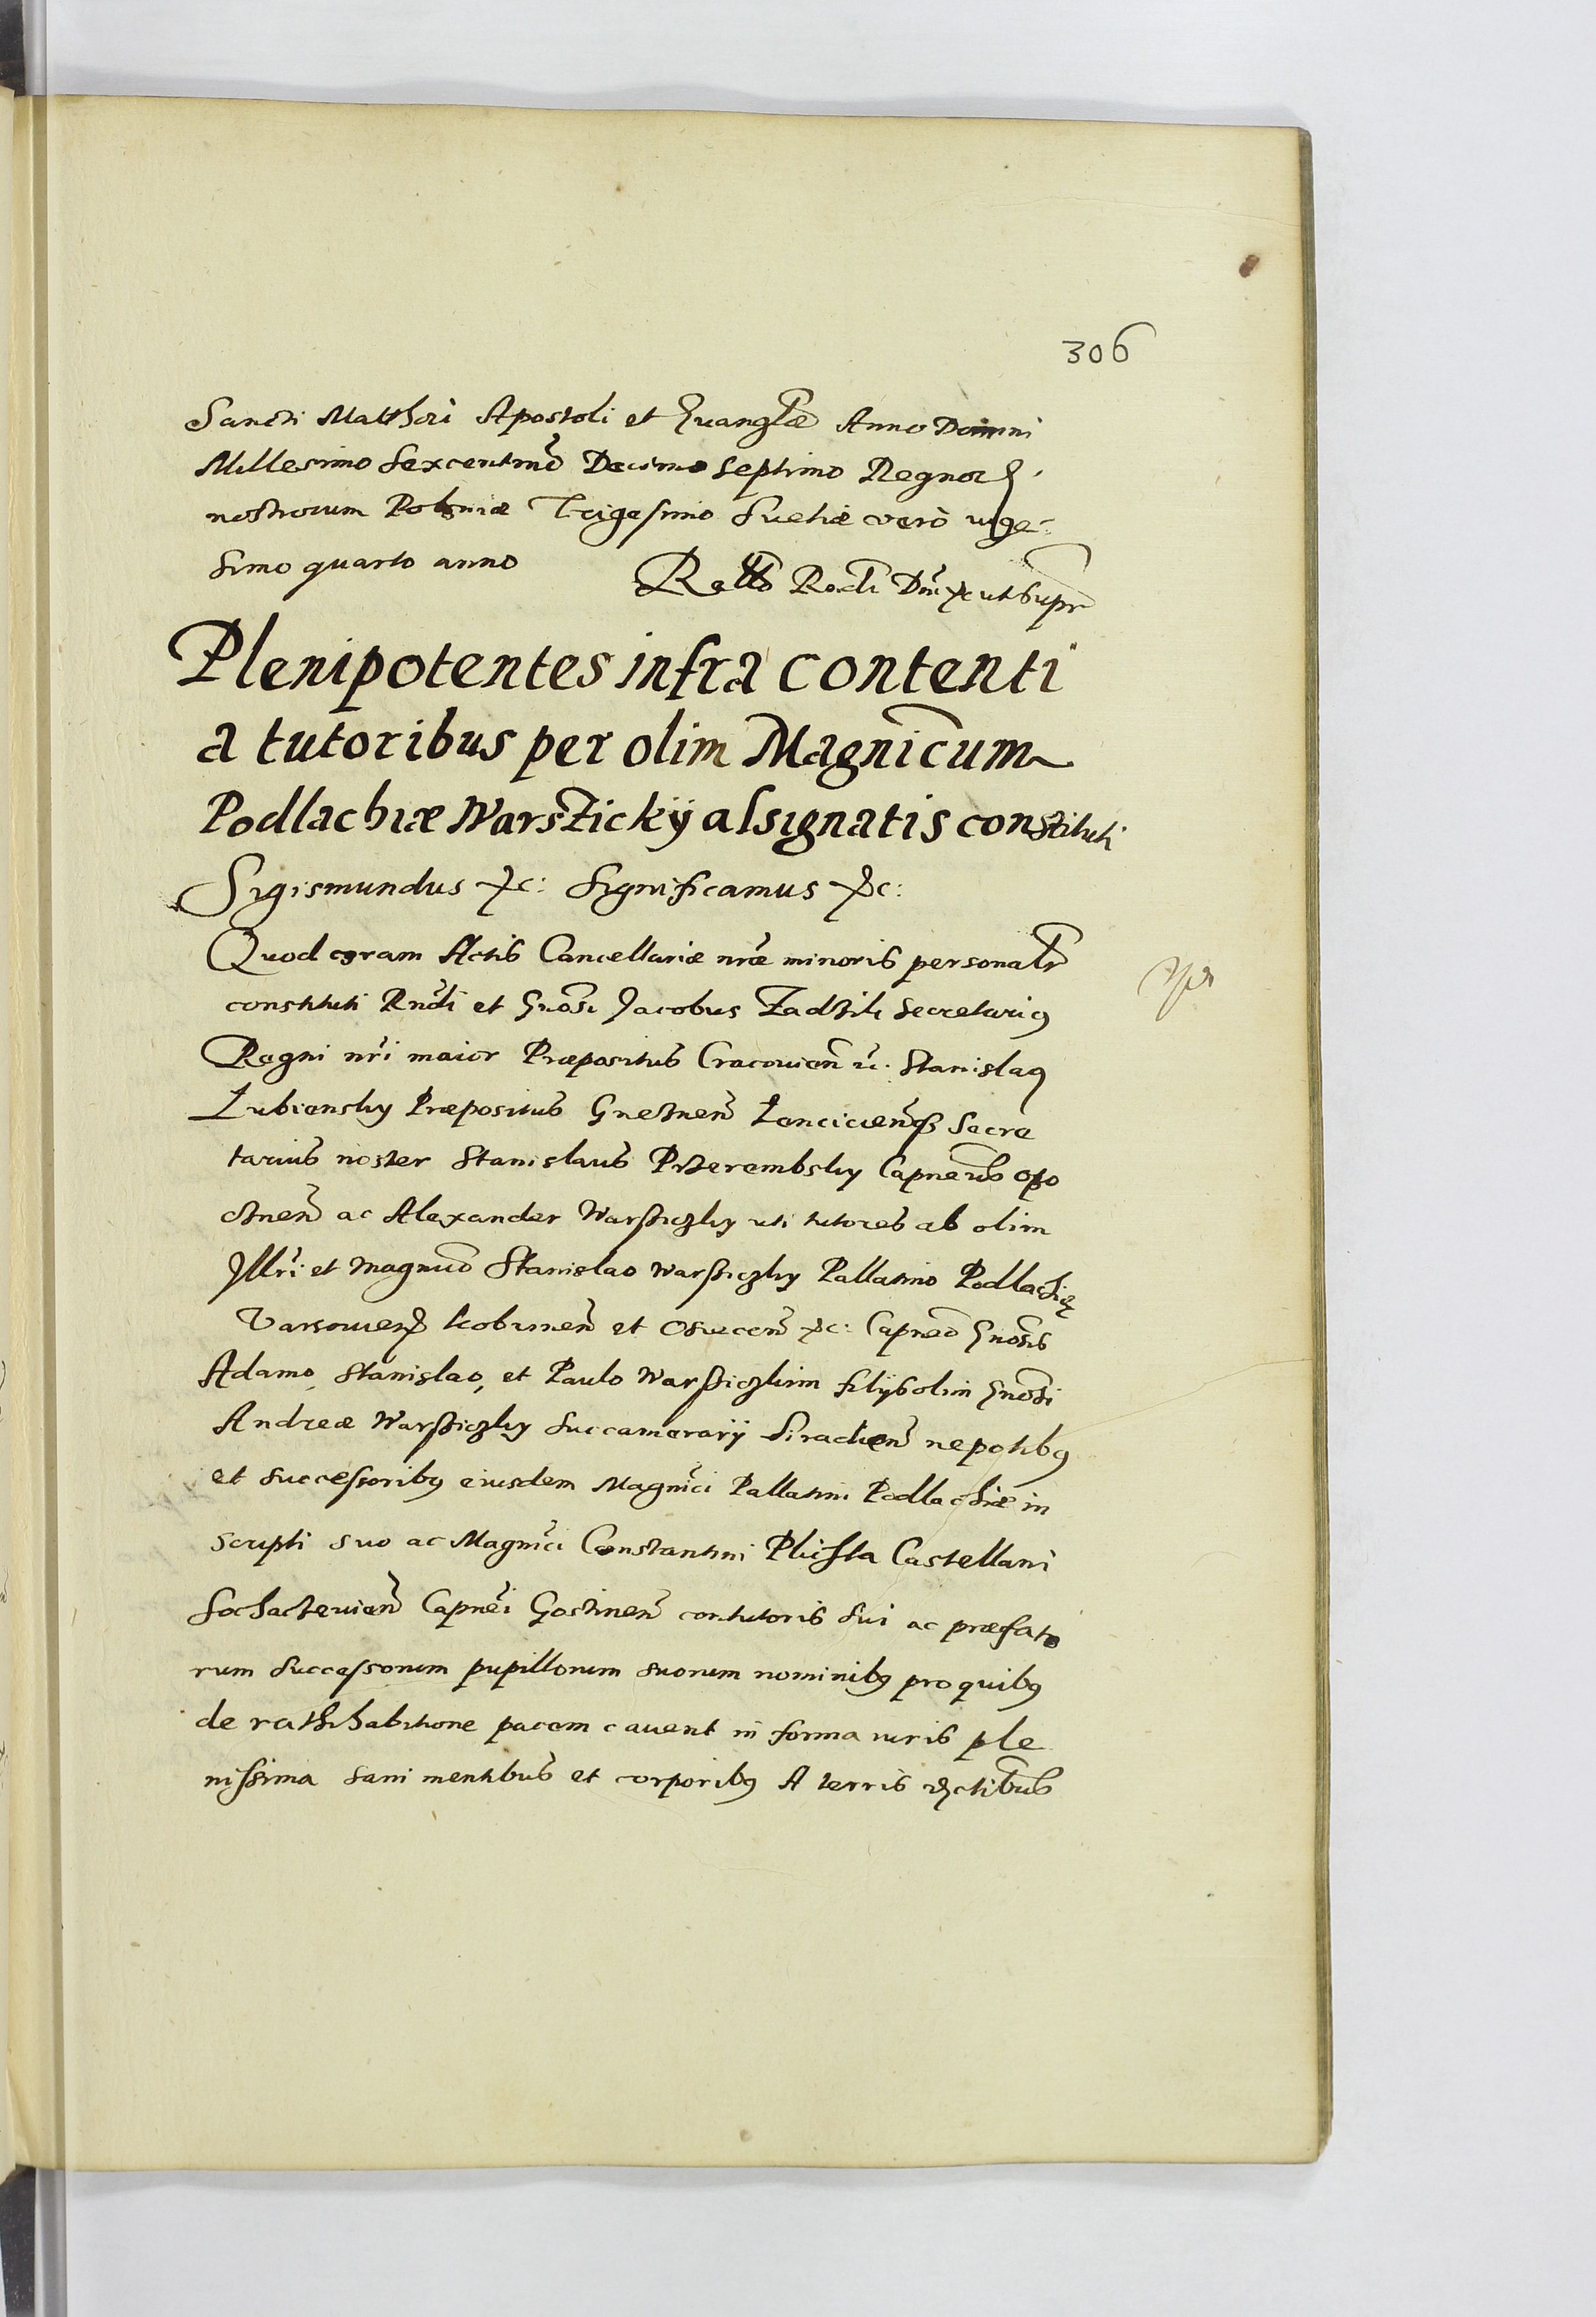 306
Sancti Matthæi Apostoli et Euangłæ Anno Domini
Millesimo Sexcentmo Decimo septimo Regnor
nostrorum Poloniæ Trigesimo Suetiæ verò vige-
simo quarto anno
Rello Rndi Dni &c ut supr
Plenipotentes infra contenti
a tutoribus per olim Magnicum
Podlachiæ Warszickÿ assignatis constituti
Sigismundus &c: Significamus &c:
Quod coram Actis Cancellariæ nræ minoris personalr
constituti Rndi et Gnosi Jacobus Zadzik Secretarius
Regni nri maior Præpositus Cracouien &. Stanislaus
Łubiensky Præpositus Gneznen Lancicienq Secre
tarius noster Stanislaus Przerembsky Capneus Opo
cznen ac Alexander Warszyczky uti tutores ab olim
Illri et Magnico Stanislao Warszyczky Pallatino Podlachiæ
Varsouien Kobrinen et Osiecen &c: Capneo Gnosis
Adamo, Stanislao, et Paulo Warszyczkim filijs olim Gnosi
Andreæ Warszyczky Succamerarij Siradien nepotibus
et successoribus eiusdem Magnici Pallatini Podlachiæ in
scripti suo ac Magnici Constantini Plichta Castellani
Sochaczeuien Capnei Gostinen contutoris sui ac præfato
rum successorum pupillorum suorum nominibus pro quibus
de rathihabitione pacem cauent in forma iuris ple
nissima sani mentibus et corporibus A terris